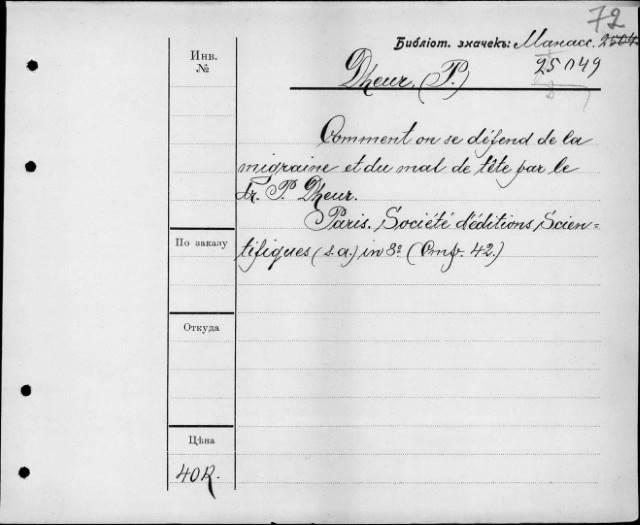 72
Библіот. значекъ: Манасс. 2504
25049
Инв.
№
Dheur. (P.)
Comment on se défend de la
migraine et du mal de tête par le
Dr. P. Dheur.
Paris. Société d'éditions Scien=
По заказу
tifiques (s.a.) in 8º (Стр. 42.)
Откуда
Цѣна
40к.